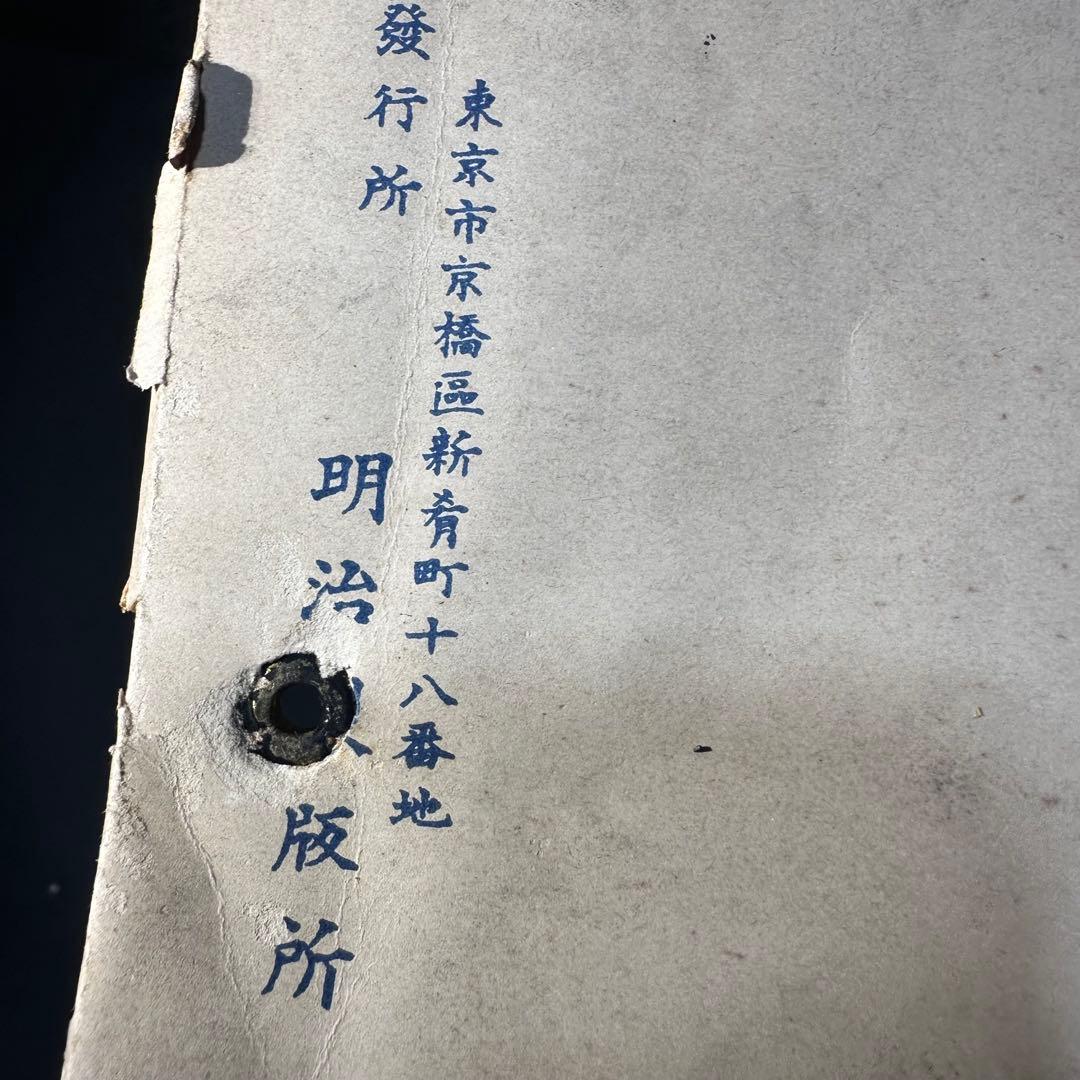 東京市京橋區新肴町十八番地
發行所
明治
版所